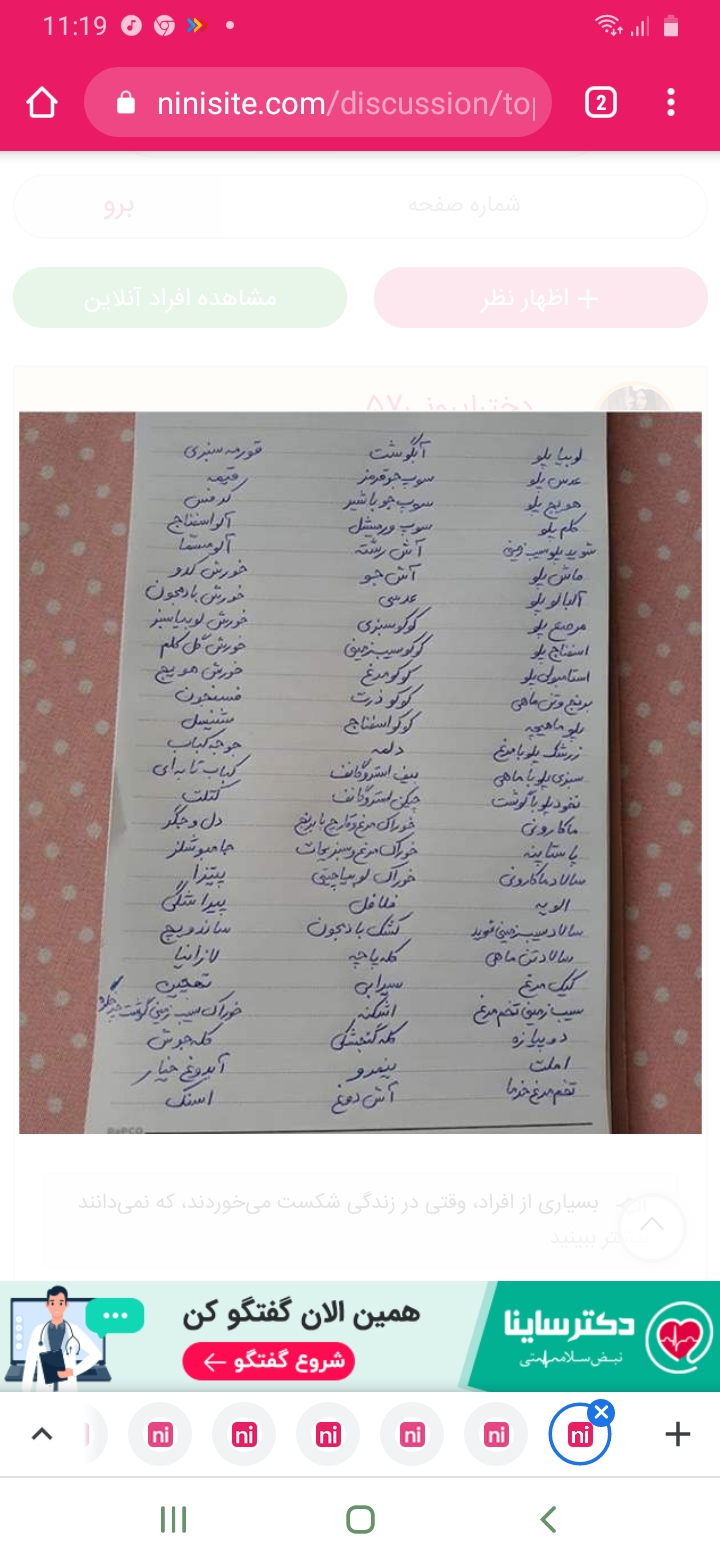 11:19
ninisite.com/discussion/top
2
شماره صفحه
برو
+ اظهار نظر
مشاهده افراد آنلاین
دختراییونی57
لوبیا پلو آبگوشت قورمه سبزی
عدس پلو سوپ جو قرمز قیمه
هویج پلو سوپ جو با شیر کرفس
کلم پلو سوپ ورمیشل آلو اسفناج
شوید پلو سیب زمینی آش رشته آلو مسما
ماش پلو آش جو خورش کدو
آلبالو پلو عدسی خورش بادمجون
مرصع پلو کوکو سبزی خورش لوبیا سبز
اسفناج پلو کوکو سیب زمینی خورش گل کلم
استامبولی پلو کوکو مرغ خورش هویج
برنج و تن ماهی کوکو ذرت فسنجون
پلو ماهیچه کوکو اسفناج شنیسل
زرشک پلو با مرغ دلمه جوجه کباب
سبزی پلو با ماهی بیف استروگانف کباب تابه ای
نخود پلو با گوشت چیکن استروگانف کتلت
ماکارونی خوراک مرغ و قارچ با برنج دل و جگر
پاستا پنه خوراک مرغ و سبزیجات هامبو شلز
سالاد ماکارونی خوراک لوبیا چیتی پیتزا
الویه فلافل پیراشکی
سالاد سیب زمینی فوید کشک بادمجون ساندویچ
سالاد تن ماهی کله پاچه لازانیا
کیک مرغ سیرابی تهچین
سیب زمینی تخم مرغ اشکنه خوراک سیب زمینی گوشت
دوپیازه کله گنجشکی کله جوش
املت نیمرو آبدوغ خیار
تخم مرغ خرما آش دوغ اسنک
PAPCO
بسیاری از افراد، وقتی در زندگی شکست می‌خوردند، که نمی‌دانند
ببینید
دکترساینا
نبض سلامتی
همین الان گفتگو کن
شروع گفتگو ←
ni
ni
ni
ni
ni
ni